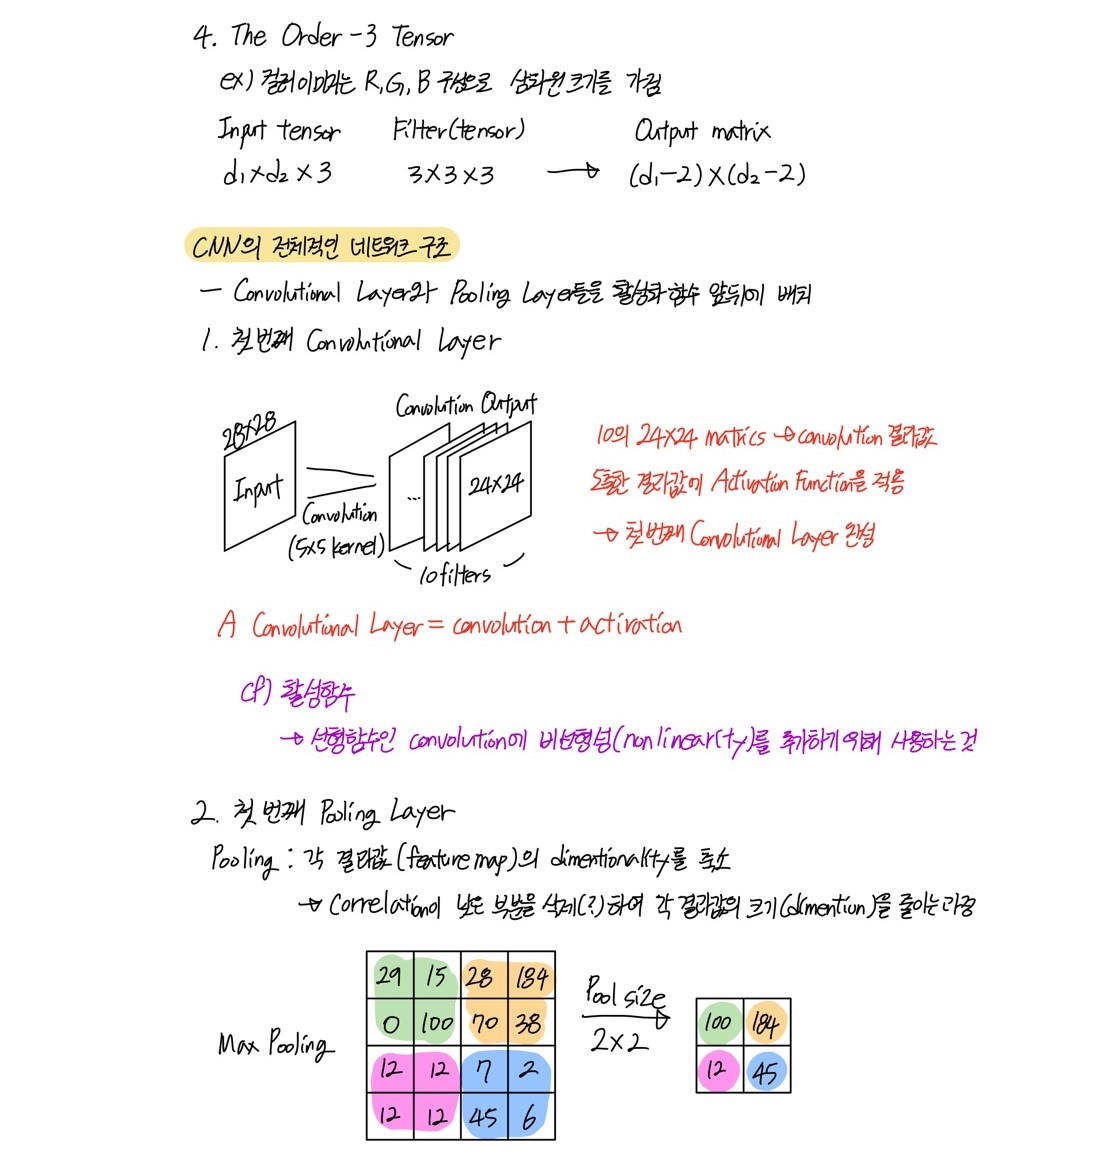 4. The Order-3 Tensor
ex) 컬러이미지는 R,G,B 구성으로 삼차원크기를 가짐
Input tensor Filter(tensor) Output matrix
d₁×d₂×3 3×3×3 → (d₁-2)×(d₂-2)
CNN의 전체적인 네트워크 구조
- Convolutional Layer와 Pooling Layer들을 활성화 함수 앞뒤에 배치
1. 첫번째 Convolutional Layer
28×28
Input
Convolution
(5×5 kernel)
Convolution Output
...
24×24
10 filters
10의 24×24 matrics → convolution 결과값
도출한 결과값에 Activation Function을 적용
→ 첫번째 Convolutional Layer 완성
A Convolutional Layer = convolution + activation
cf) 활성함수
→ 선형함수인 convolution에 비선형성(nonlinearity)를 추가하기 위해 사용하는 것
2. 첫 번째 Pooling Layer
Pooling : 각 결과값(feature map)의 dimentionality를 축소
→ Correlation이 낮은 부분을 삭제(?)하여 각 결과값의 크기(dimention)을 줄이는 과정
Max Pooling
29 15 28 184
0 100 70 38
12 12 7 2
12 12 45 6
Pool size
2×2
100 184
12 45